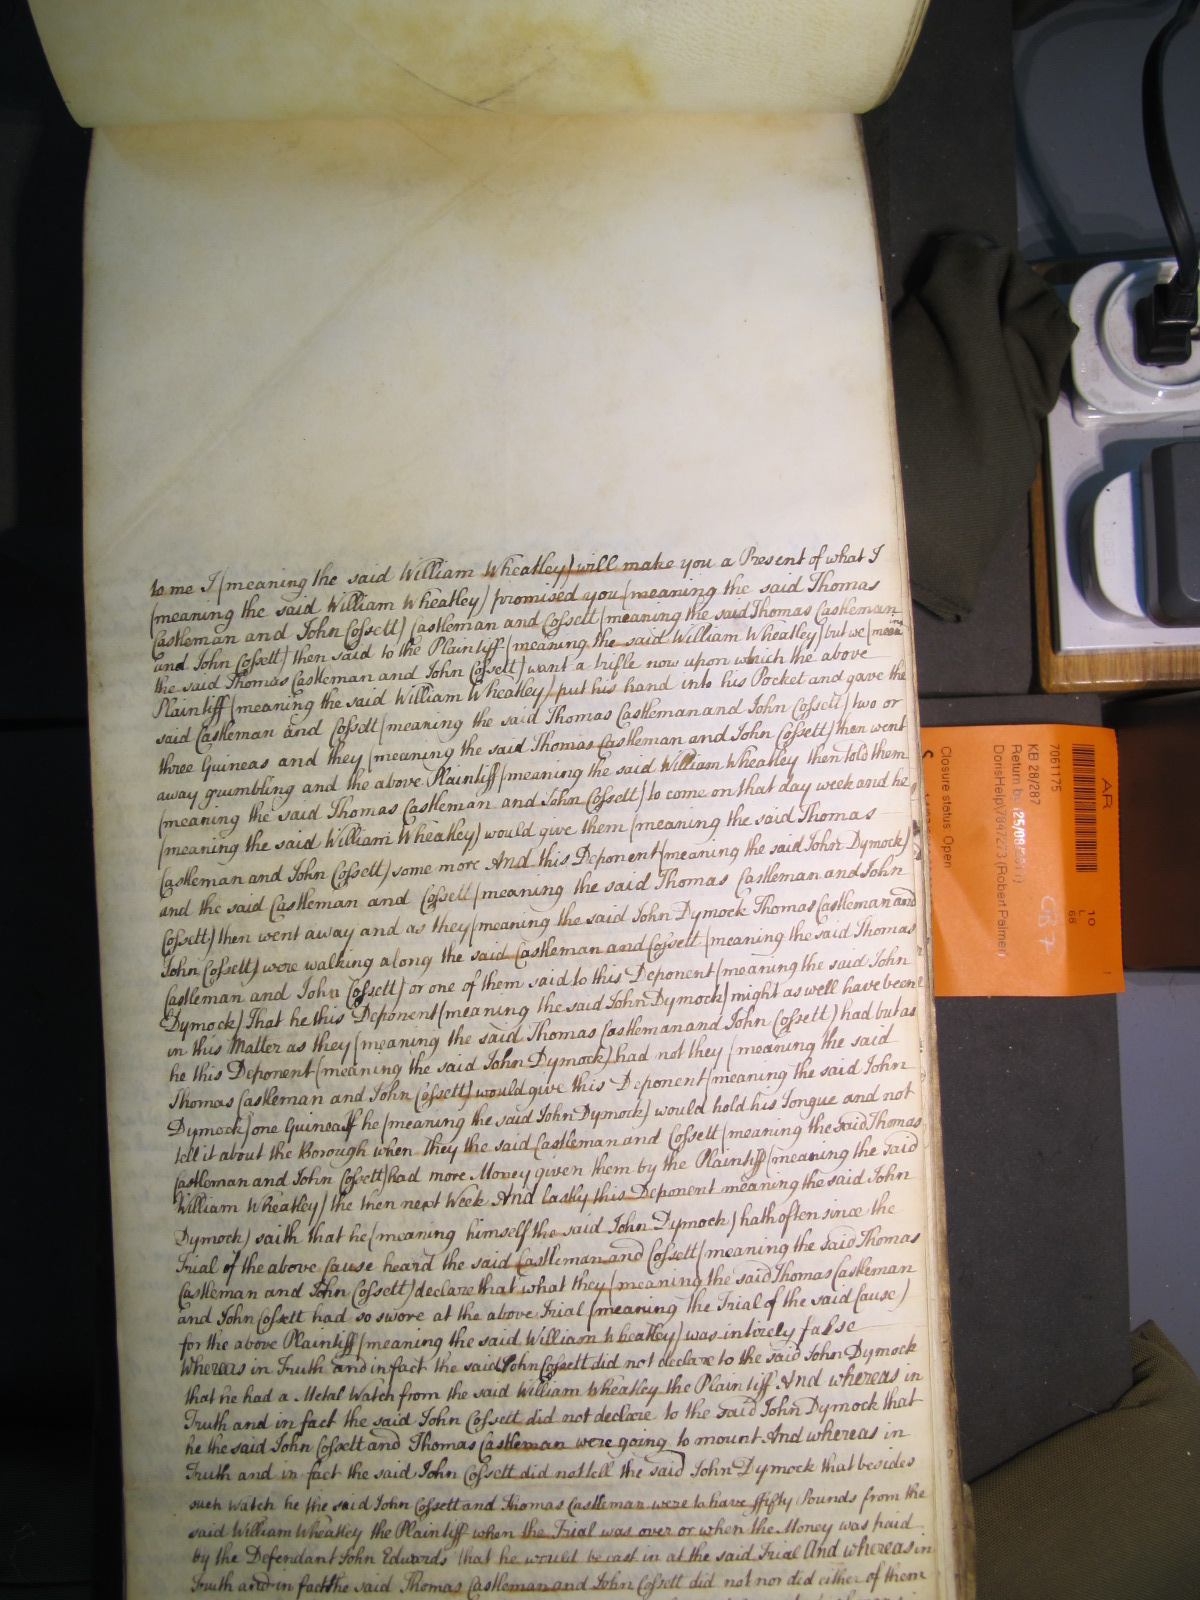 to me I (meaning the said William Wheatley) will make you a Present of what I
(meaning the said William Wheatley) promised you (meaning the said Thomas
Castleman and John Cossett) Castleman and Cossett (meaning the said Thomas Castleman
and John Cossett) then said to the Plaintiff (meaning the said William Wheatley) but we (meaning
the said Thomas Castleman and John Cossett) want a trifle now upon which the above
Plaintiff (meaning the said William Wheatley) put his hand into his Pocket and gave the
said Castleman and Cossett (meaning the said Thomas Castleman and John Cossett) two or
three Guineas and they (meaning the said Thomas Castleman and John Cossett) then went
away grumbling and the above Plaintiff (meaning the said William Wheatley then told them
(meaning the said Thomas Castleman and John Cossett) to come on that day week and he
(meaning the said William Wheatley) would give them (meaning the said Thomas
Castleman and John Cossett) some more And this Deponent (meaning the said John Dymock)
and the said Castleman and Cossett (meaning the said Thomas Castleman and John
Cossett) then went away and as they (meaning the said John Dymock Thomas Castleman and
John Cossett) were walking along the said Castleman and Cossett (meaning the said Thomas
Castleman and John Cossett) or one of them said to this Deponent (meaning the said John
Dymock) That he this Deponent (meaning the said John Dymock) might as well have been
in this Matter as they (meaning the said Thomas Castleman and John Cossett) had but as
he this Deponent (meaning the said John Dymock) had not they (meaning the said
Thomas Castleman and John Cossett) would give this Deponent (meaning the said John
Dymock) one Guinea If he (meaning the said John Dymock) would hold his Tongue and not
tell it about the Borough when they the said Castleman and Cossett (meaning the said Thomas
Castleman and John Cossett) had more Money given them by the Plaintiff (meaning the said
William Wheatley) the then next Week And lastly this Deponent meaning the said John
Dymock) saith that he (meaning himself the said John Dymock) hath often since the
Trial of the above Cause heard the said Castleman and Cossett (meaning the said Thomas
Castleman and John Cossett) declare that what they (meaning the said Thomas Castleman
and John Cossett had so swore at the above Trial (meaning the Trial of the said Cause)
for the above Plaintiff (meaning the said William Wheatley) was intirely false
Whereas in Truth and in fact the said John Cossett did not declare to the said John Dymock
that he had a Metal Watch from the said William Wheatley the Plaintiff And whereas in
Truth and in fact the said John Cossett did not declare to the said John Dymock that
he the said John Cossett and Thomas Castleman were going to mount And whereas in
Truth and in fact the said John Cossett did not tell the said John Dymock that besides
such Watch he the said John Cossett and Thomas Castleman were to have ffifty Pounds from the
said William Wheatley the Plaintiff when the Trial was over or when the Money was paid
by the Defendant John Edwards that he would be cast in at the said Trial And whereas in
Truth and in fact the said Thomas Castleman and John Cossett did not nor did either of them
AR
7061175
KB 28/287
Return by
(Robert Palmer)
Closure status Open
10
L
68